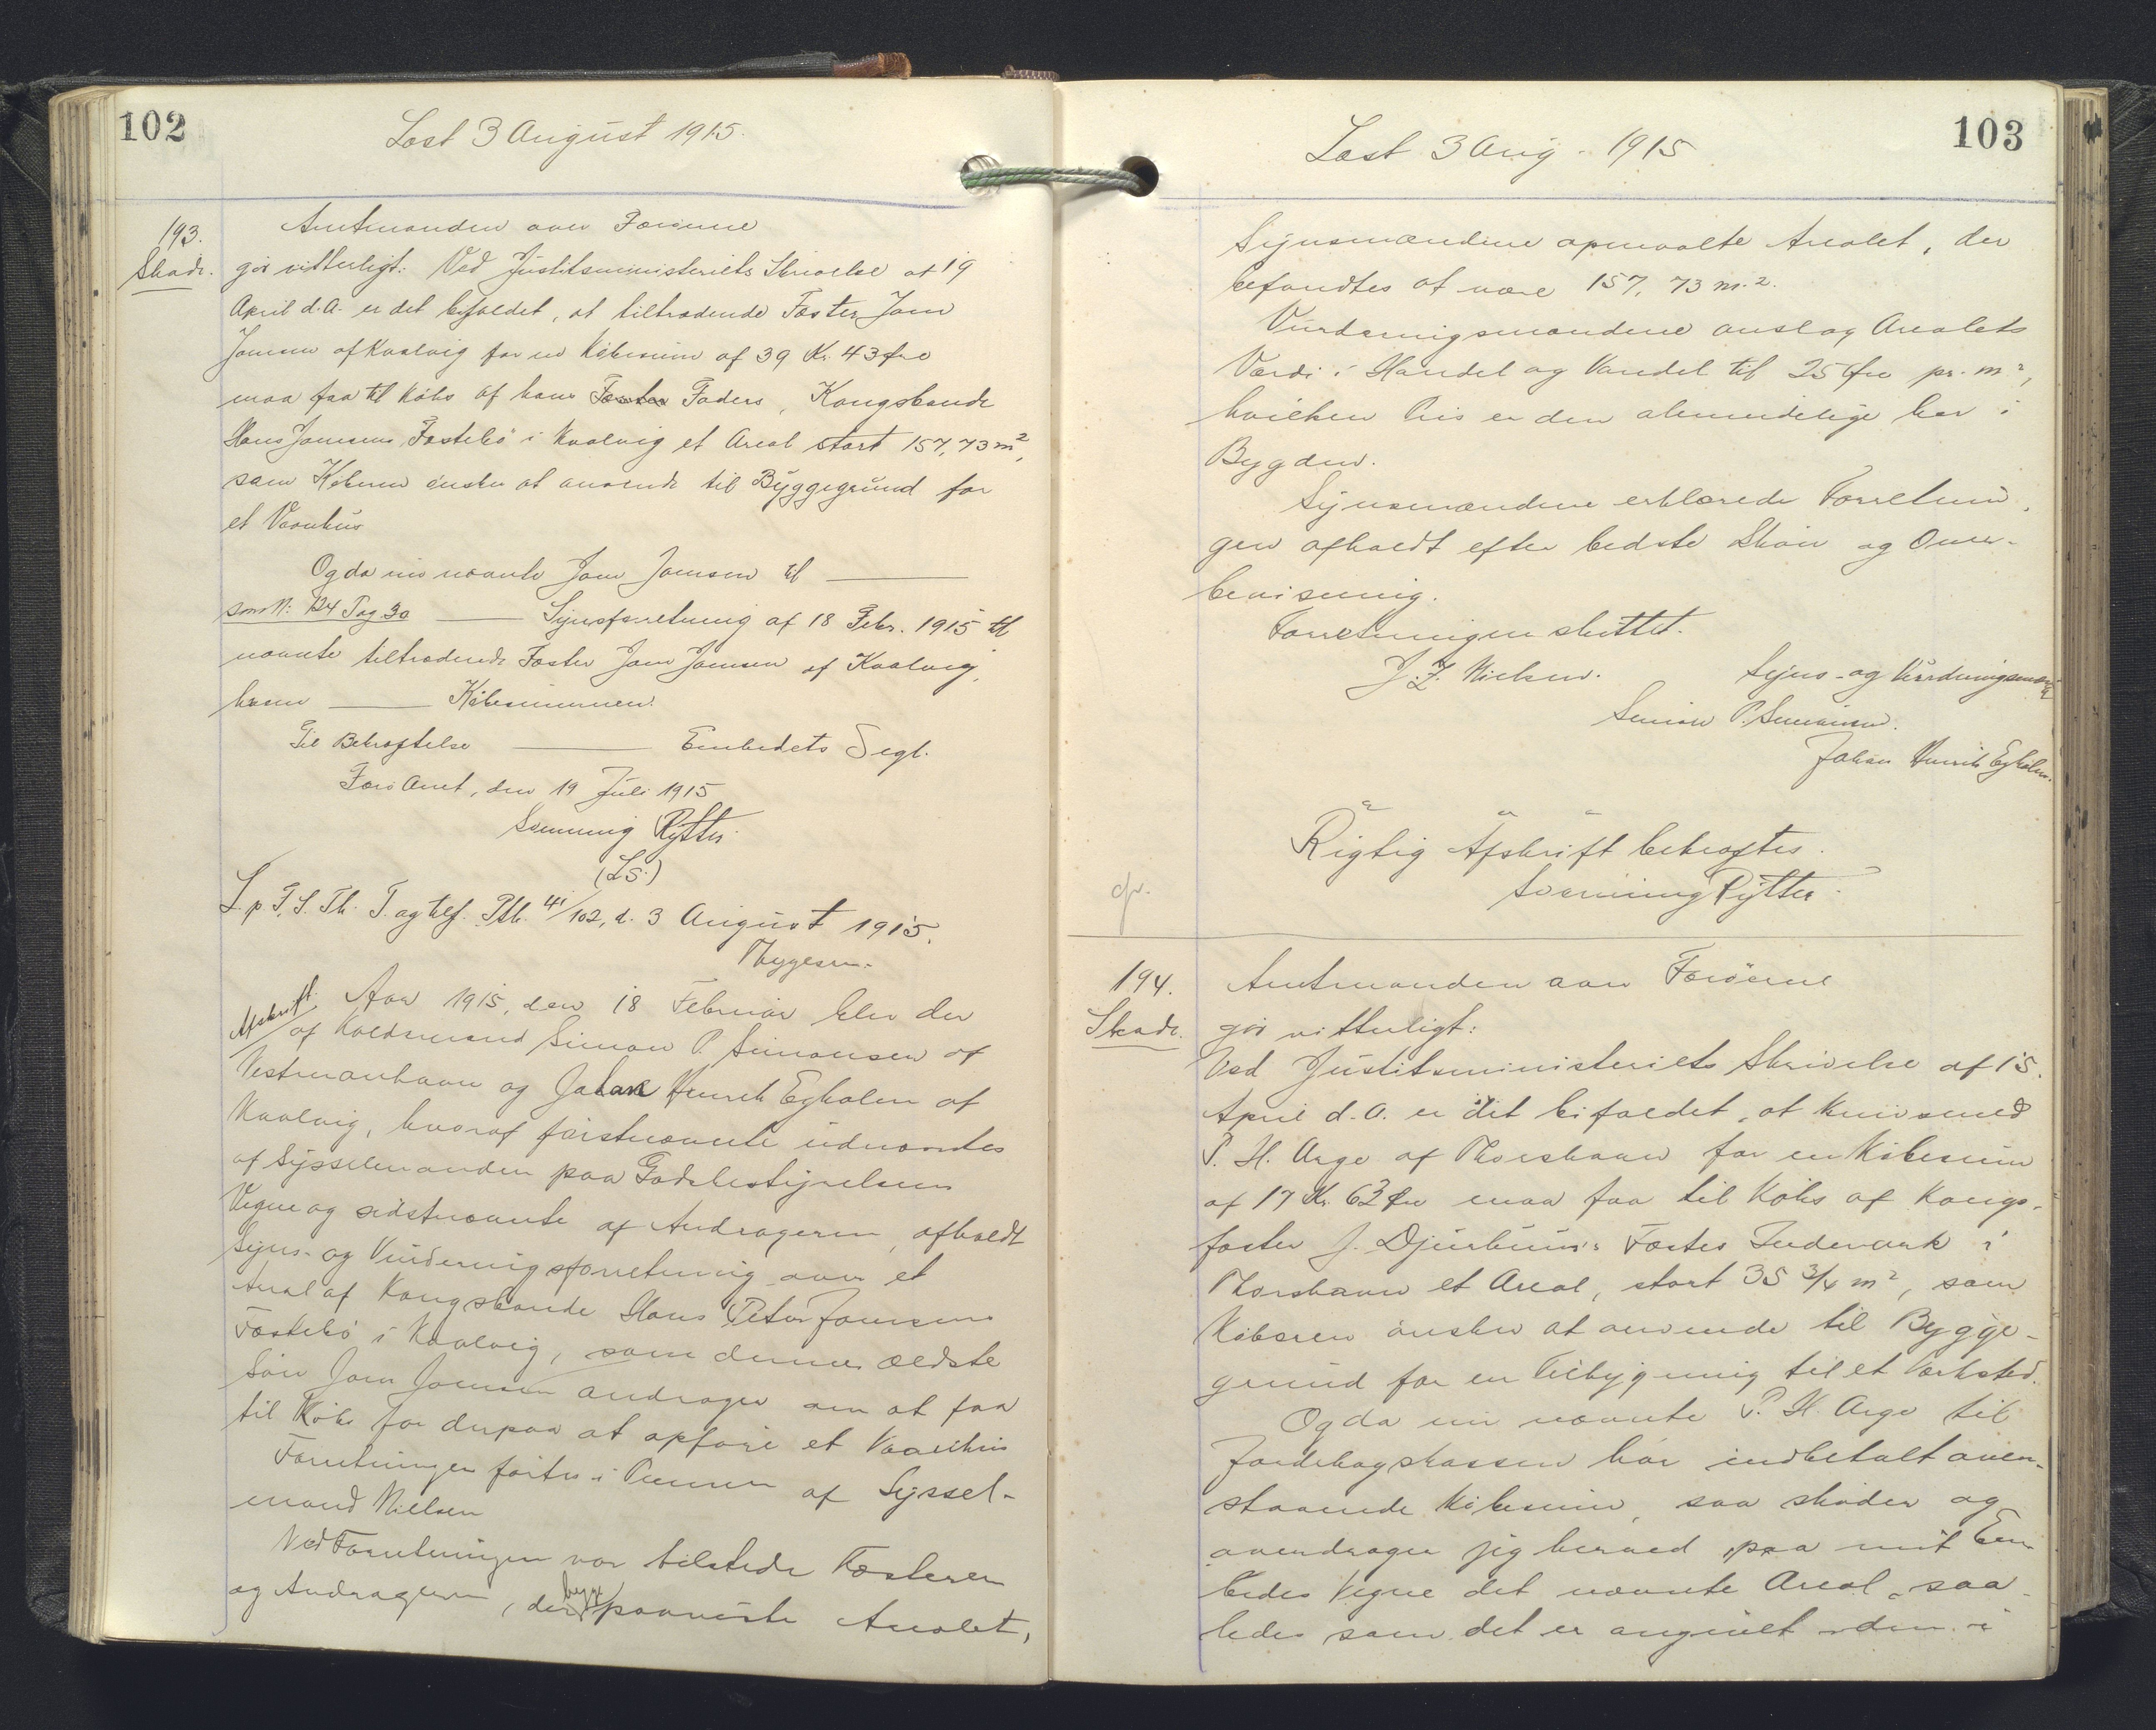 102
Læst 3 August 1915.
193.
Skøde.
Amtmanden over Færøerne
gör vitterligt: Ved Justitsministeriets Skrivelse af 19
April d.A. er det bifaldet, at tiltrædende Fæster Jam
Jamsen af Kvalvig for en Købesum af 39 Kr. 43 Øre
maa faa til Købs af hans Fæster Faders, Kongsbonde
Hans Jamsens Fæstebö i Kvalvig et Areal stort 157,73 m²,
som Köberen önsker at anvende til Byggegrund for
et Vaanhus
Og da nu nævnte Jam Jamsen til ———
som N: 124 Pag 30 ——— Synsforretning af 18 Febr. 1915 til
nævnte tiltrædende Fæster Jam Jamsen af Kvalvig,
hvem ——— Köbesummen.
Til Bekræftelse ——— Embedets Segl.
Færö Amt, den 19 Juli 1915
Svenning Rytter.
(L.S.)
L. p F. S. Th. T. og tilf. Ptb. 41/102, d. 3 August 1915.
Thygesen.
Afskrift.
Aar 1915, den 18 Februar blev der
af Voldsmand Simon P. Simonsen af
Vestmanhavn og Johan Henrik Egholm af
Kvalvig, hvoraf förstnævnte udnævntes
af Sysselmanden paa Godsbestyrelsens
Vegne og sidstnævnte af Andrageren, afholdt
Syns- og Vurderingsforretning over et
Areal af Kongsbonde Hans Peter Jamsens
Fæstebö i Kvalvig, som dennes ældste
Sön Jam Jamsen andrager om at faa
til Köbs for derpaa at opföre et Vaanhus
Forretningen förtes i Pennen af Syssel-
mand Nielsen
Ved Forretningen var tilstede Fæsteren
og Andrageren, der begge paaviste Arealet,
103
Læst 3 Aug. 1915
Synsmændene opmaalte Arealet, der
befandtes at være 157,73 m.².
Vurderingsmændene anslog Arealets
Værdi i Handel og Vandel til 25 Øre pr. m²,
hvilken Pris er den almindelige her i
Bygden.
Synsmændene erklærede Forretnin-
gen afholdt efter bedste Skön og Over-
bevisning.
Forretningen sluttet.
J. F. Nielsen.
Syns- og Vurderingsmænd
Simon P. Simonsen.
Johan Henrik Egholm.
Rigtig Afskrift bekræftes.
Svenning Rytter.
194.
Skøde.
Amtmanden over Færöerne
gör vitterligt:
Ved Justitsministeriets Skrivelse af 15.
April d.A. er det bifaldet, at Kunsmed
P. H. Arge af Thorshavn for en Köbesum
af 17 Kr. 63 Øre maa faa til Købs af Kongs-
fæster J. Djurhuus's Fæstes Indemark i
Thorshavn et Areal, stort 35 3/4 m², som
Köberen önsker at anvende til Bygge-
grund for en Tilbygning til et Værksted.
Og da nu nævnte P. H. Arge til
Jordebogskassen har indbetalt oven-
staaende Köbesum, saa sköder og
overdrager jeg herved paa mit Em-
bedes Vegne det nævnte Areal, saa-
ledes som det er angivet i den i